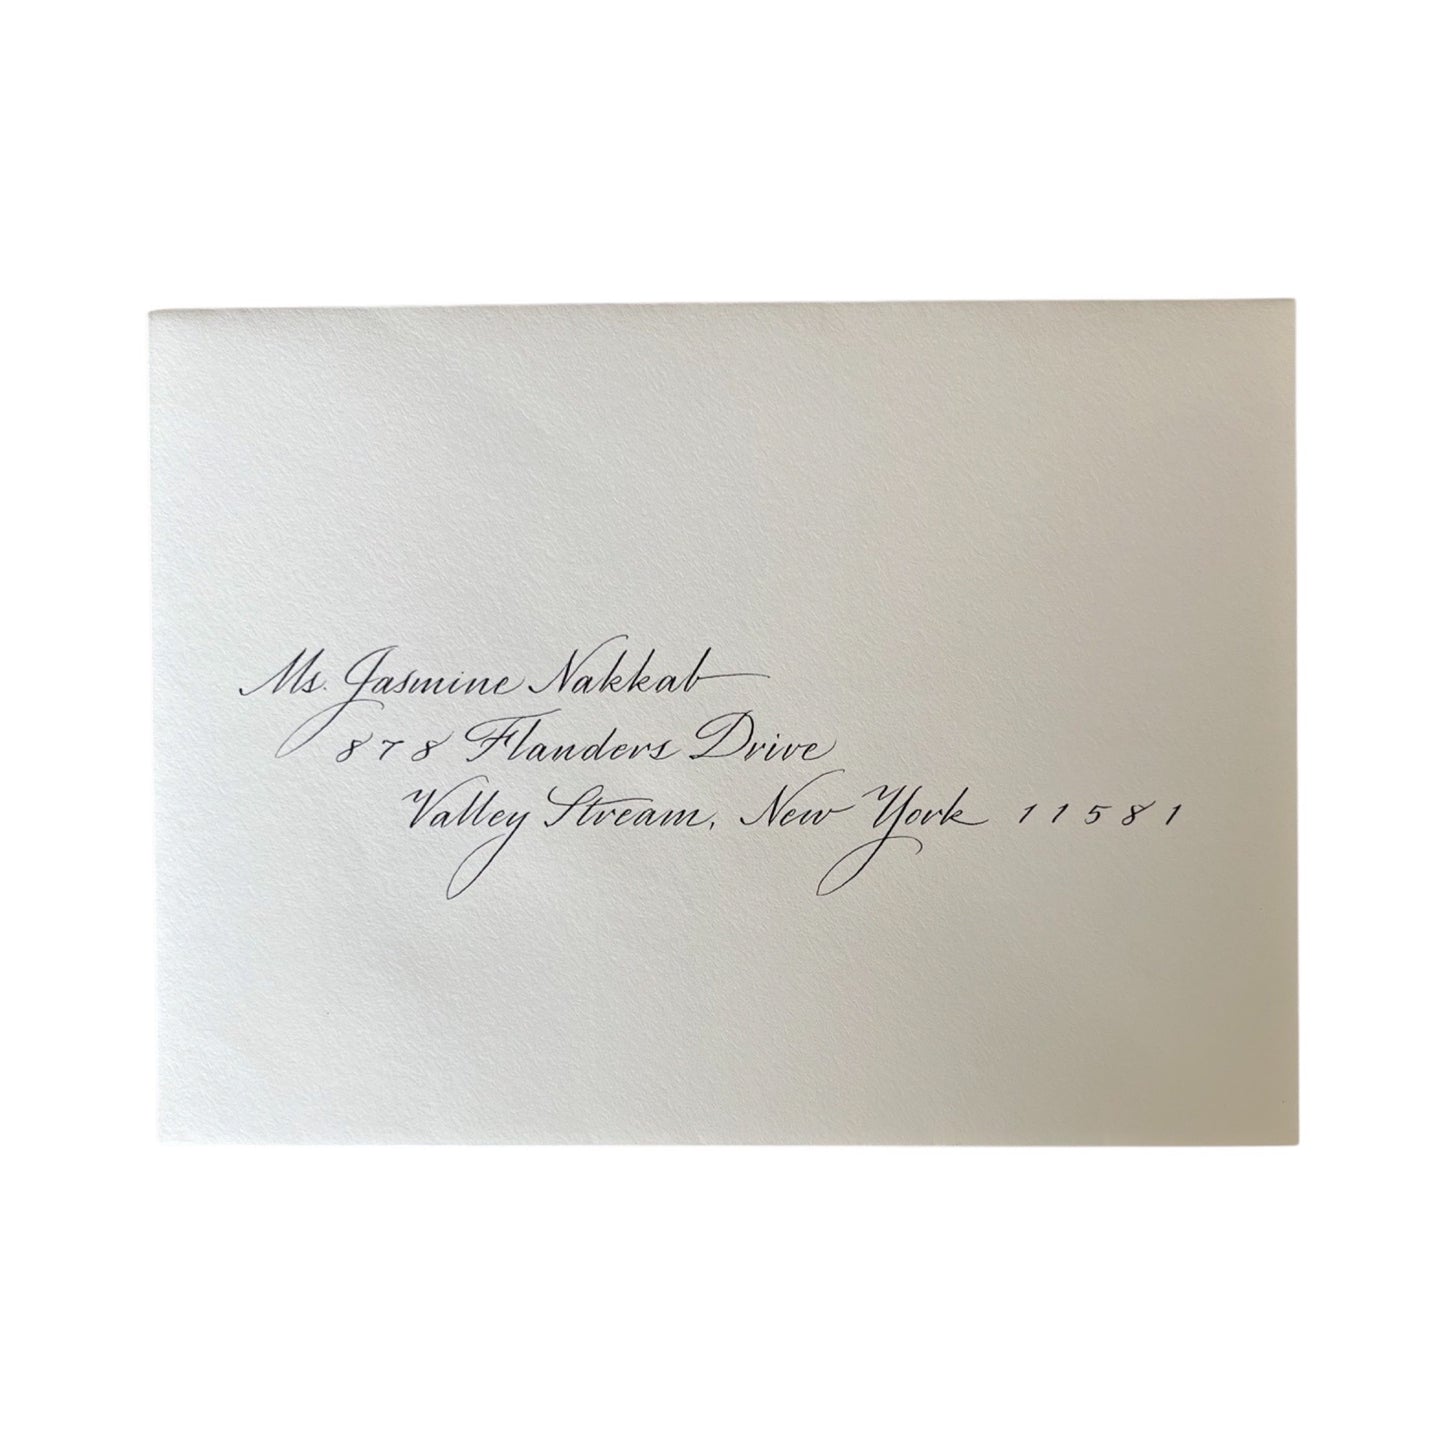 Ms. Jasmine Nakkab
878 Flanders Drive
Valley Stream, New York 11581